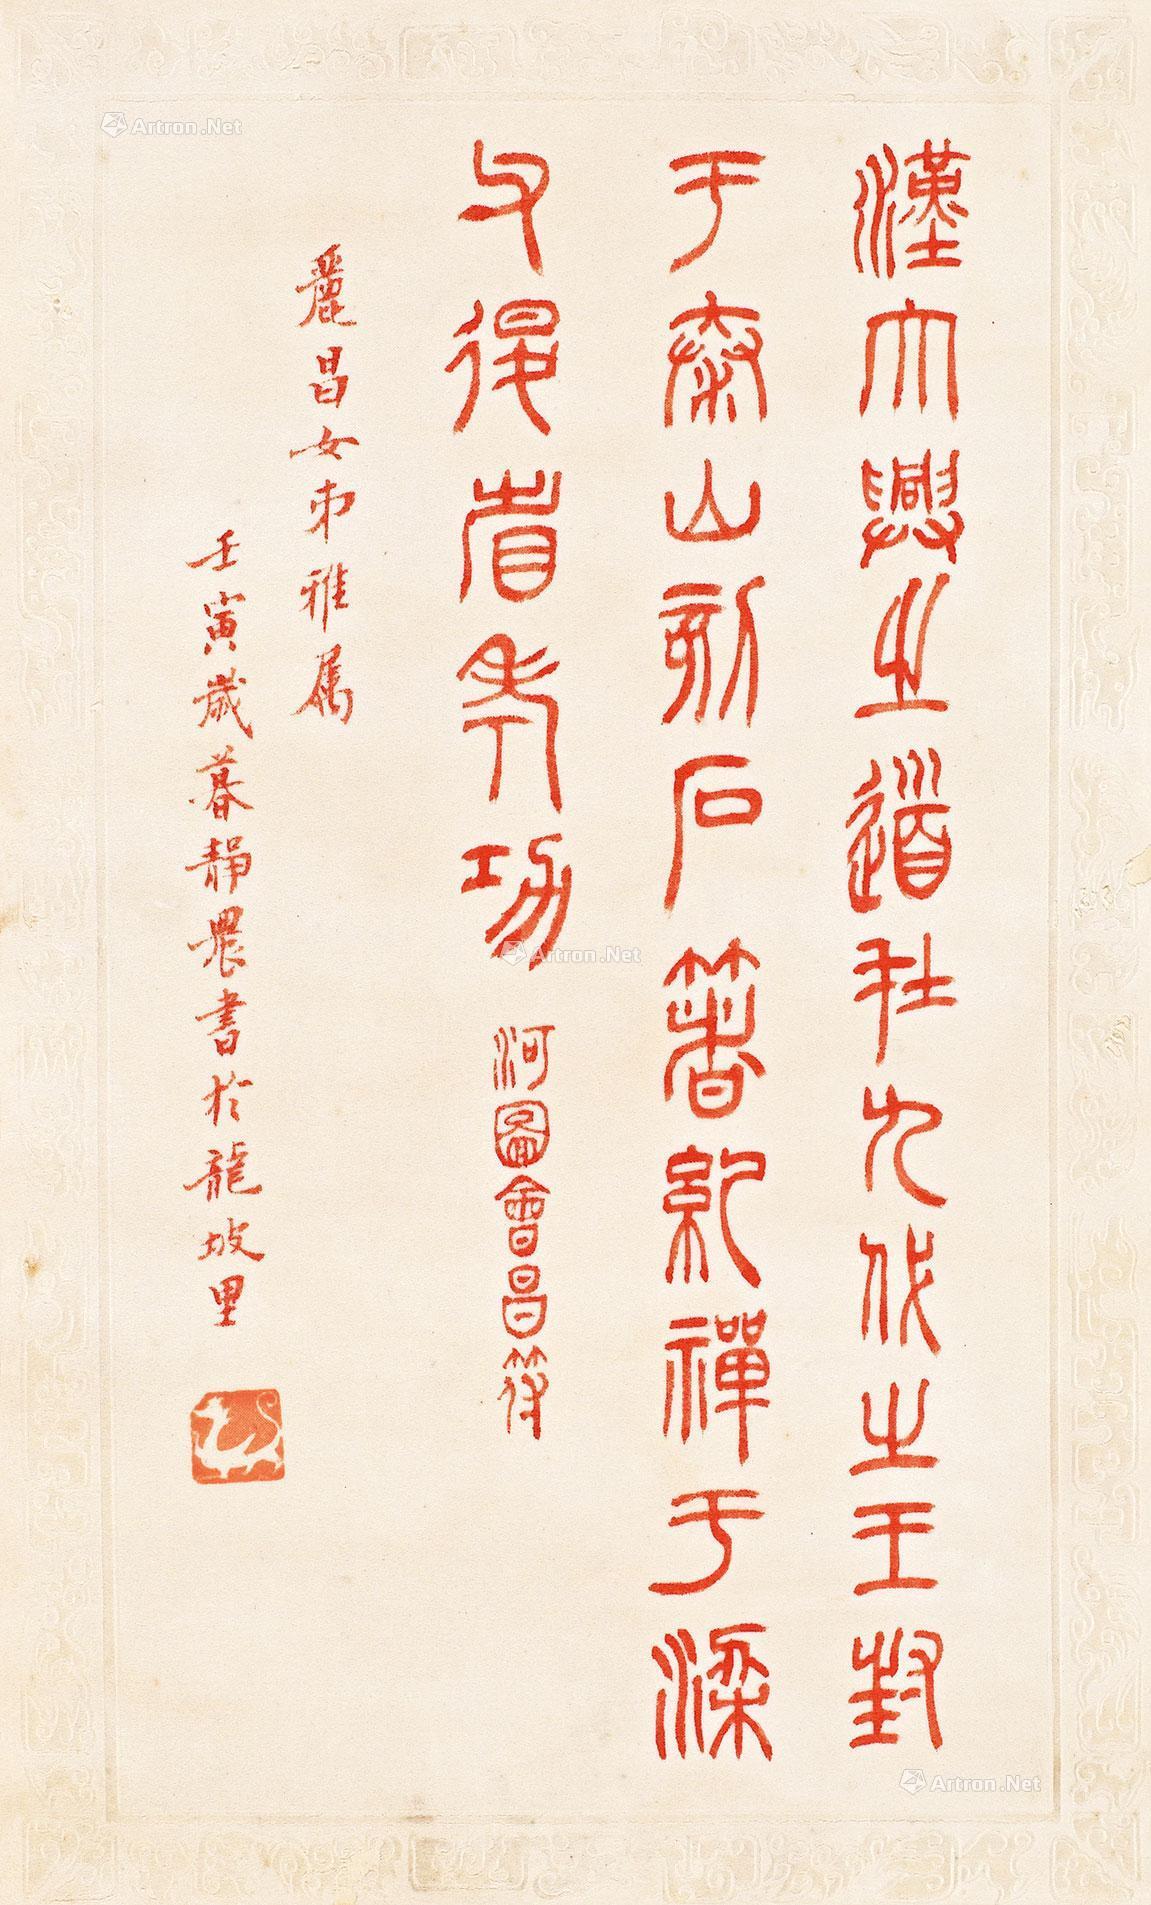 漢大興之道在九代之王封
于泰山刻石著紀禪于梁
父退省考功 河圖會昌符
麗昌女弟雅属
壬寅歲暮靜農書於龍坡里
Artron.Net
Artron.Net
Artron.Net